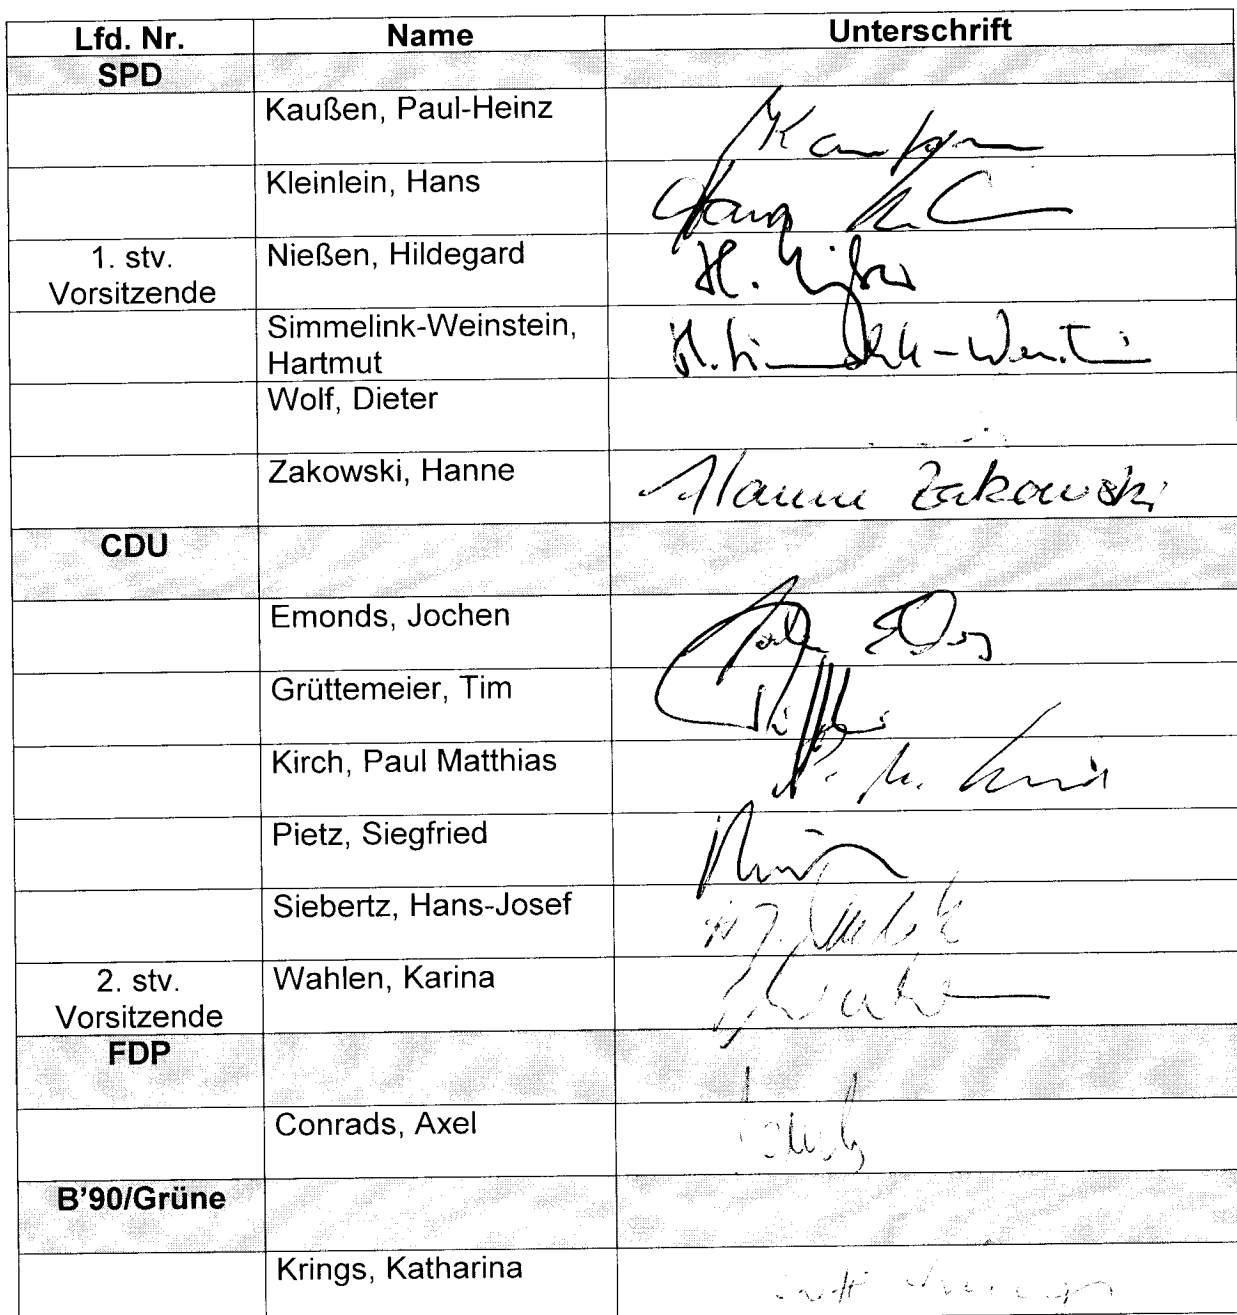 Lfd. Nr. Name Unterschrift
SPD
Kaußen, Paul-Heinz
Kleinlein, Hans
1. stv. Vorsitzende Nießen, Hildegard
Simmelink-Weinstein,
Hartmut
Wolf, Dieter
Zakowski, Hanne Hanne Zakowski
CDU
Emonds, Jochen
Grüttemeier, Tim
Kirch, Paul Matthias
Pietz, Siegfried
Siebertz, Hans-Josef
2. stv. Vorsitzende Wahlen, Karina
FDP
Conrads, Axel
B'90/Grüne
Krings, Katharina